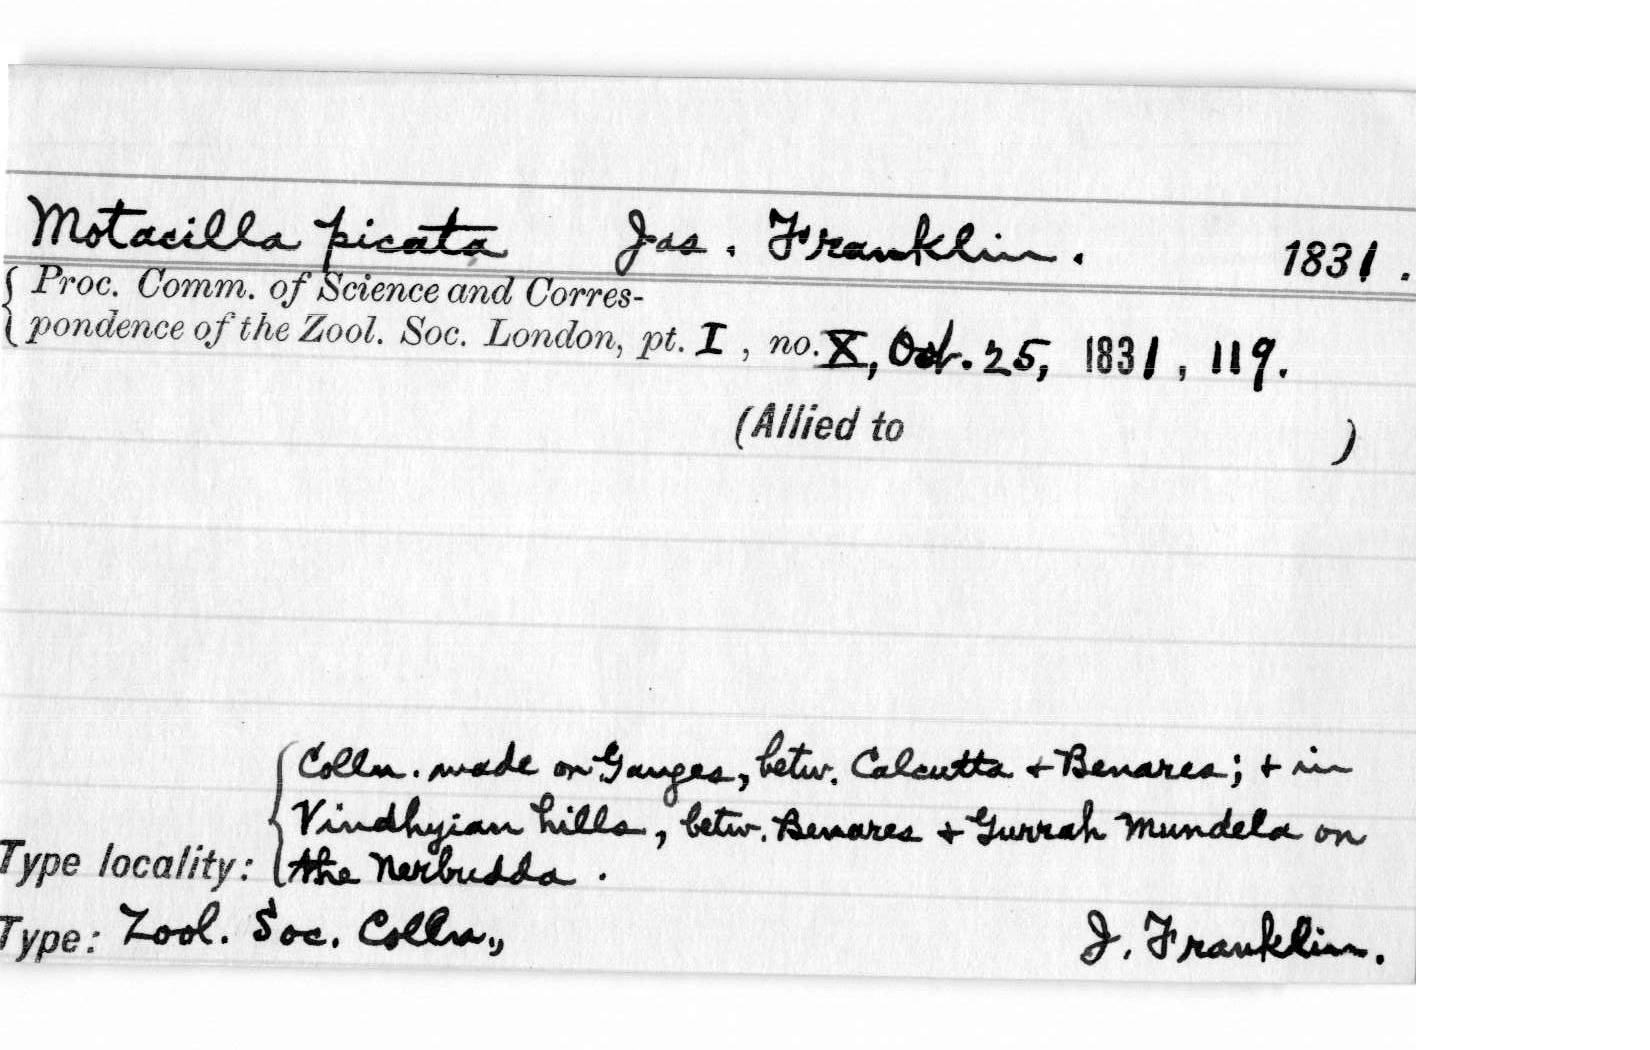 Motacilla picata Jas. Franklin. 1831.
Proc. Comm. of Science and Corres-
pondence of the Zool. Soc. London, pt. I, no. X, Oct. 25, 1831, 119.
(Allied to )
Colln. made on Ganges, betw. Calcutta + Benares; + in
Vindhyian hills, betw. Benares + Gurrah Mundela on
Type locality: the Nerbudda.
Type: Zool. Soc. Colln., J. Franklin.